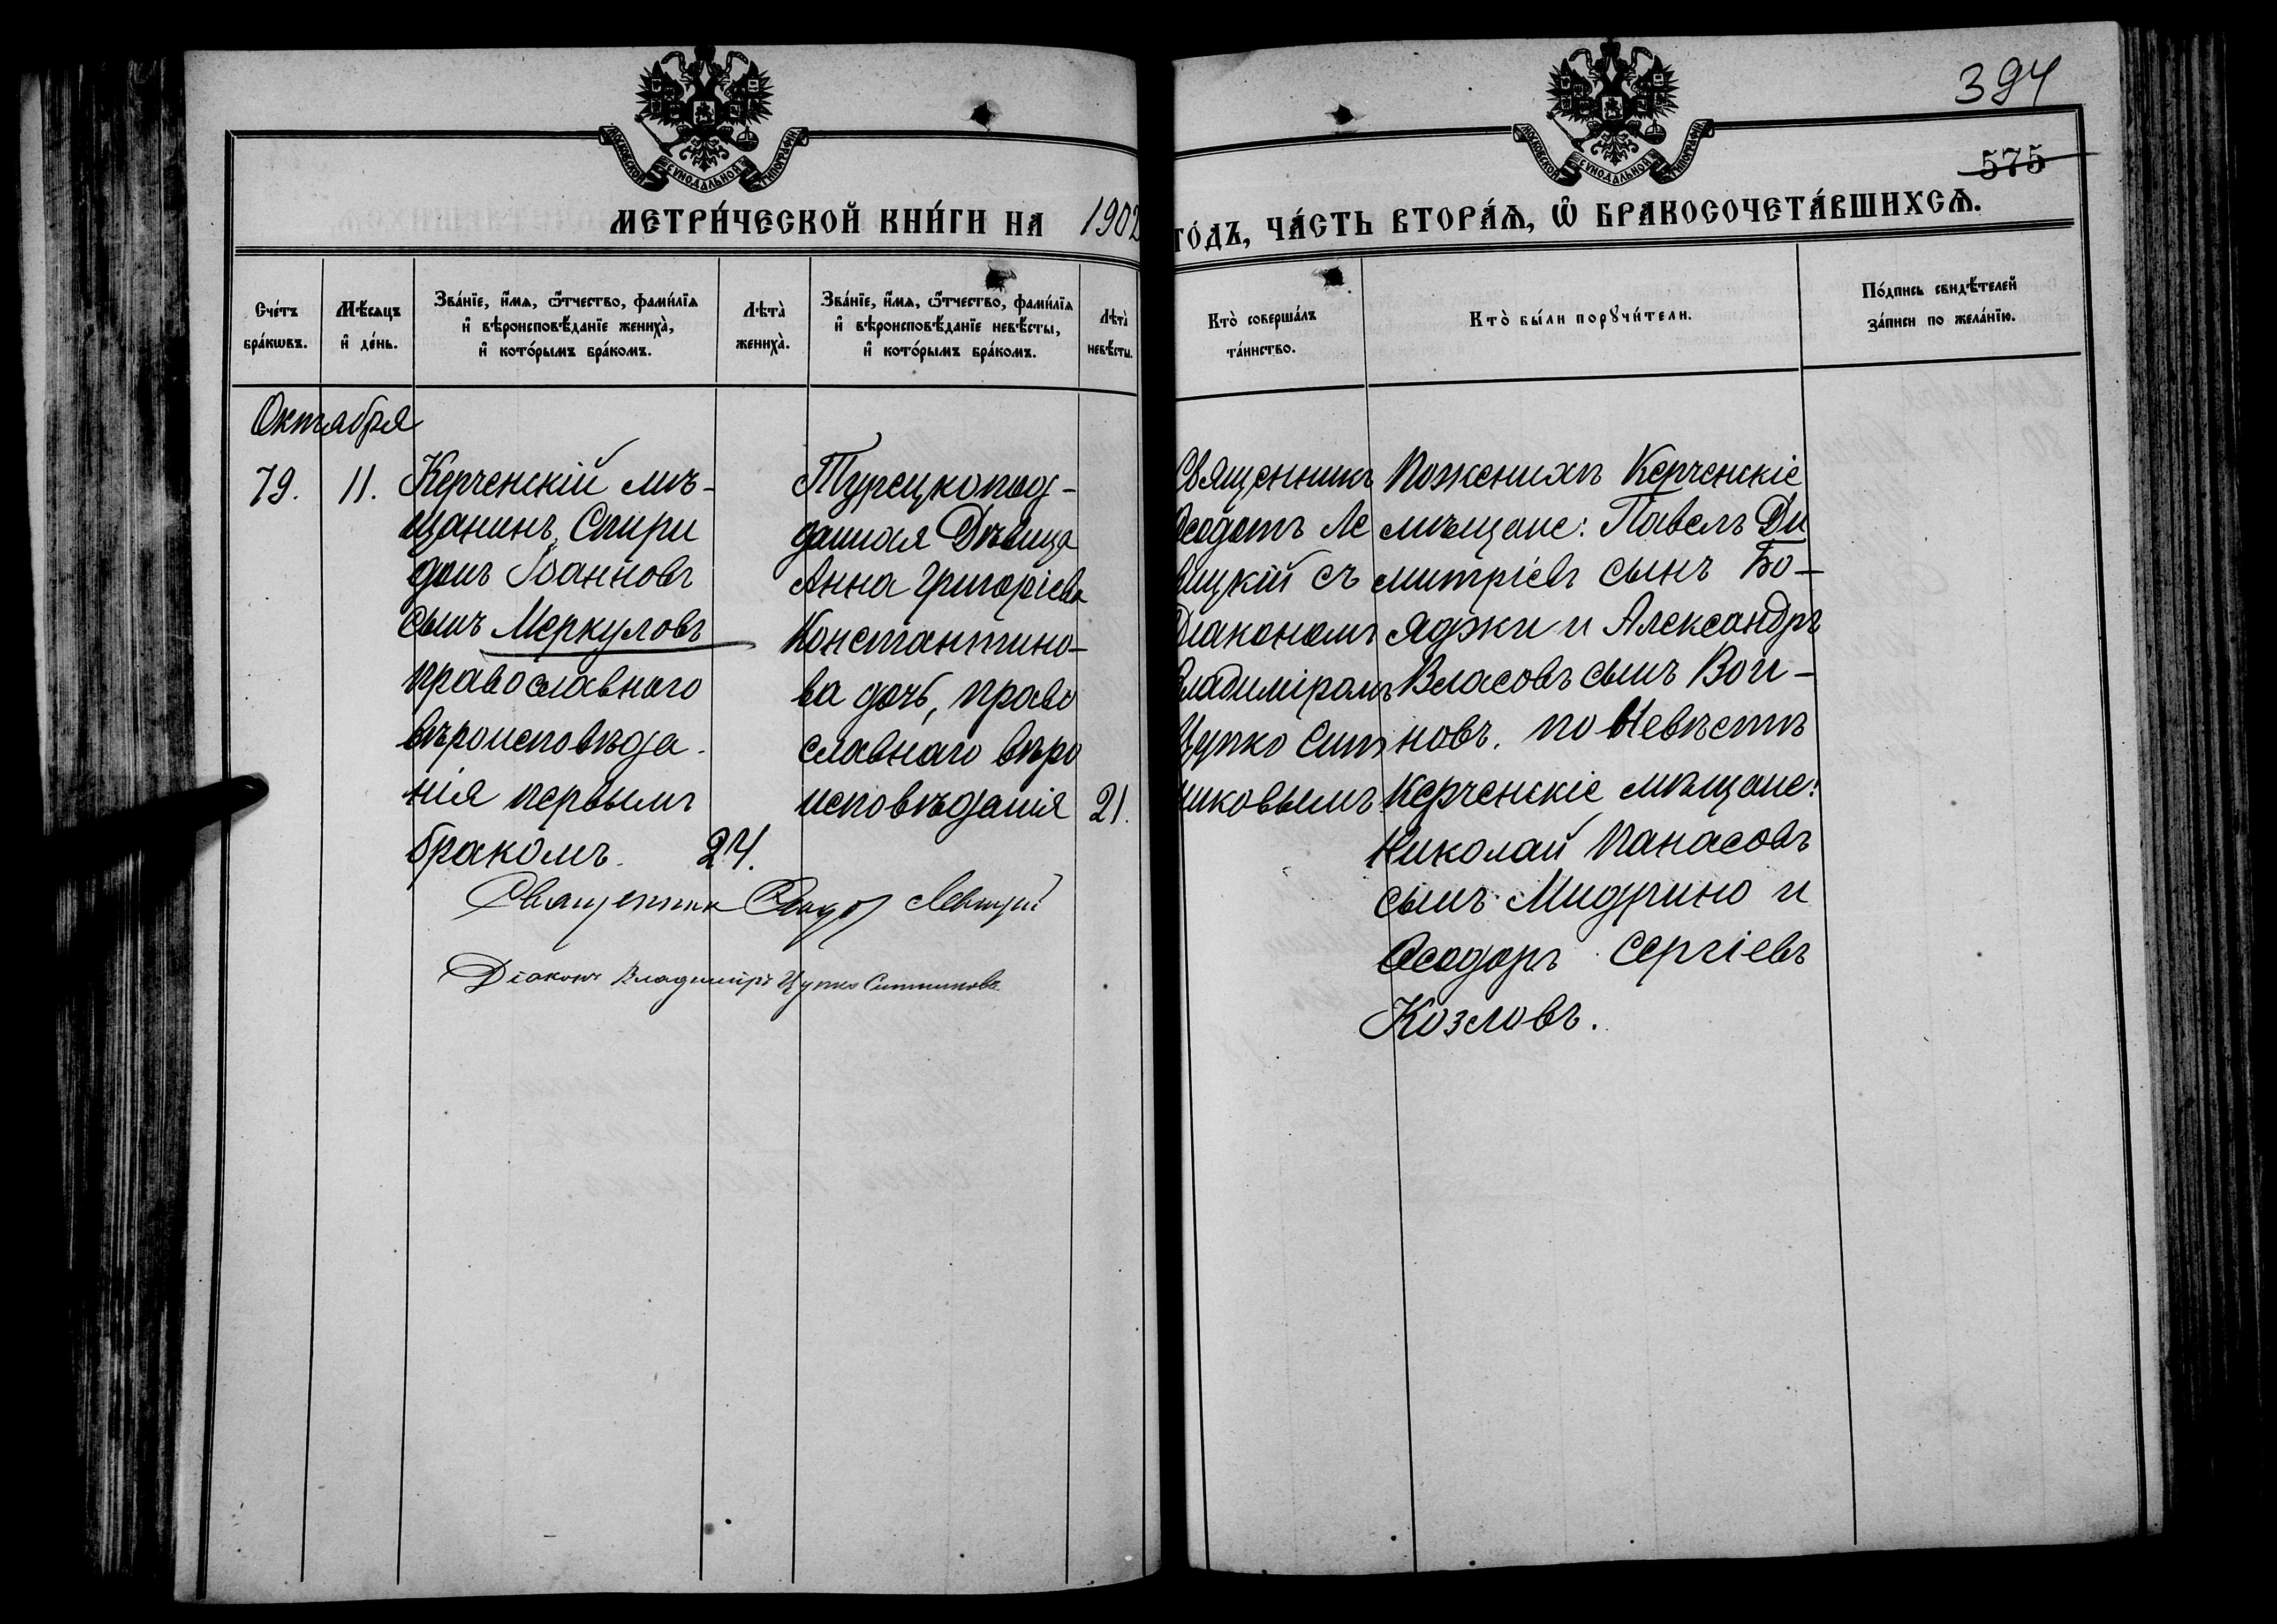 394
575
МОСКОВСКОЙ СѴНОДАЛЬНОЙ ТИПОГРАФІИ
МОСКОВСКОЙ СѴНОДАЛЬНОЙ ТИПОГРАФІИ
МЕТРИ́ЧЕСКОЙ КНИ́ГИ НА 1902
ГО́ДЪ, ЧА́СТЬ ВТОРА́Ѧ, Ѽ БРАКОСОЧЕТА́ВШИХСѦ.
Сче́тъ
бра́кѡвъ.
Мѣ́сѧцъ
и҆ де́нь.
Зва́нїе, и҆́мѧ, ѻ҆́тчество, фами́лїѧ
и҆ вѣроисповѣ́данїе жениха̀,
и҆ кото́рымъ бра́комъ.
Лѣта̀
жениха̀.
Зва́нїе, и҆́мѧ, ѻ҆́тчество, фами́лїѧ
и҆ вѣроисповѣ́данїе невѣ́сты,
и҆ кото́рымъ бра́комъ.
Лѣта̀
невѣ́сты.
Кто̀ соверша́лъ
та́инство.
Кто̀ бы́ли порꙋчи́тели.
По́дпись свидѣ́телей
за́писи по жела́нїю.
Октября
79.
11.
Керченскій мѣ-
щанинъ, Спири
донъ Іоанновъ
сынъ Меркуловъ
православнаго
вѣроисповѣда-
нія первымъ
бракомъ.
24.
Турецкопод-
данная Дѣвица
Анна Григоріева
Константино-
ва дочь, право
славнаго вѣро
исповѣданія
21.
Священникъ
Ѳеодотъ Ле
вицкій съ
Діакономъ
Владиміромъ
Цупко Сит
никовымъ
По женихѣ Керченскіе
мѣщане: Павелъ Ди
митріевъ сынъ Бо-
яджи и Александръ
Власовъ сынъ Вои-
новъ. по Невѣстѣ
Керченскіе мѣщане:
Николай Панасовъ
сынъ Мидрино и
Ѳеодоръ Сергіевъ
Козловъ.
Священник Ѳеодот Левицкій
Діаконъ Владиміръ Цупко Ситниковъ